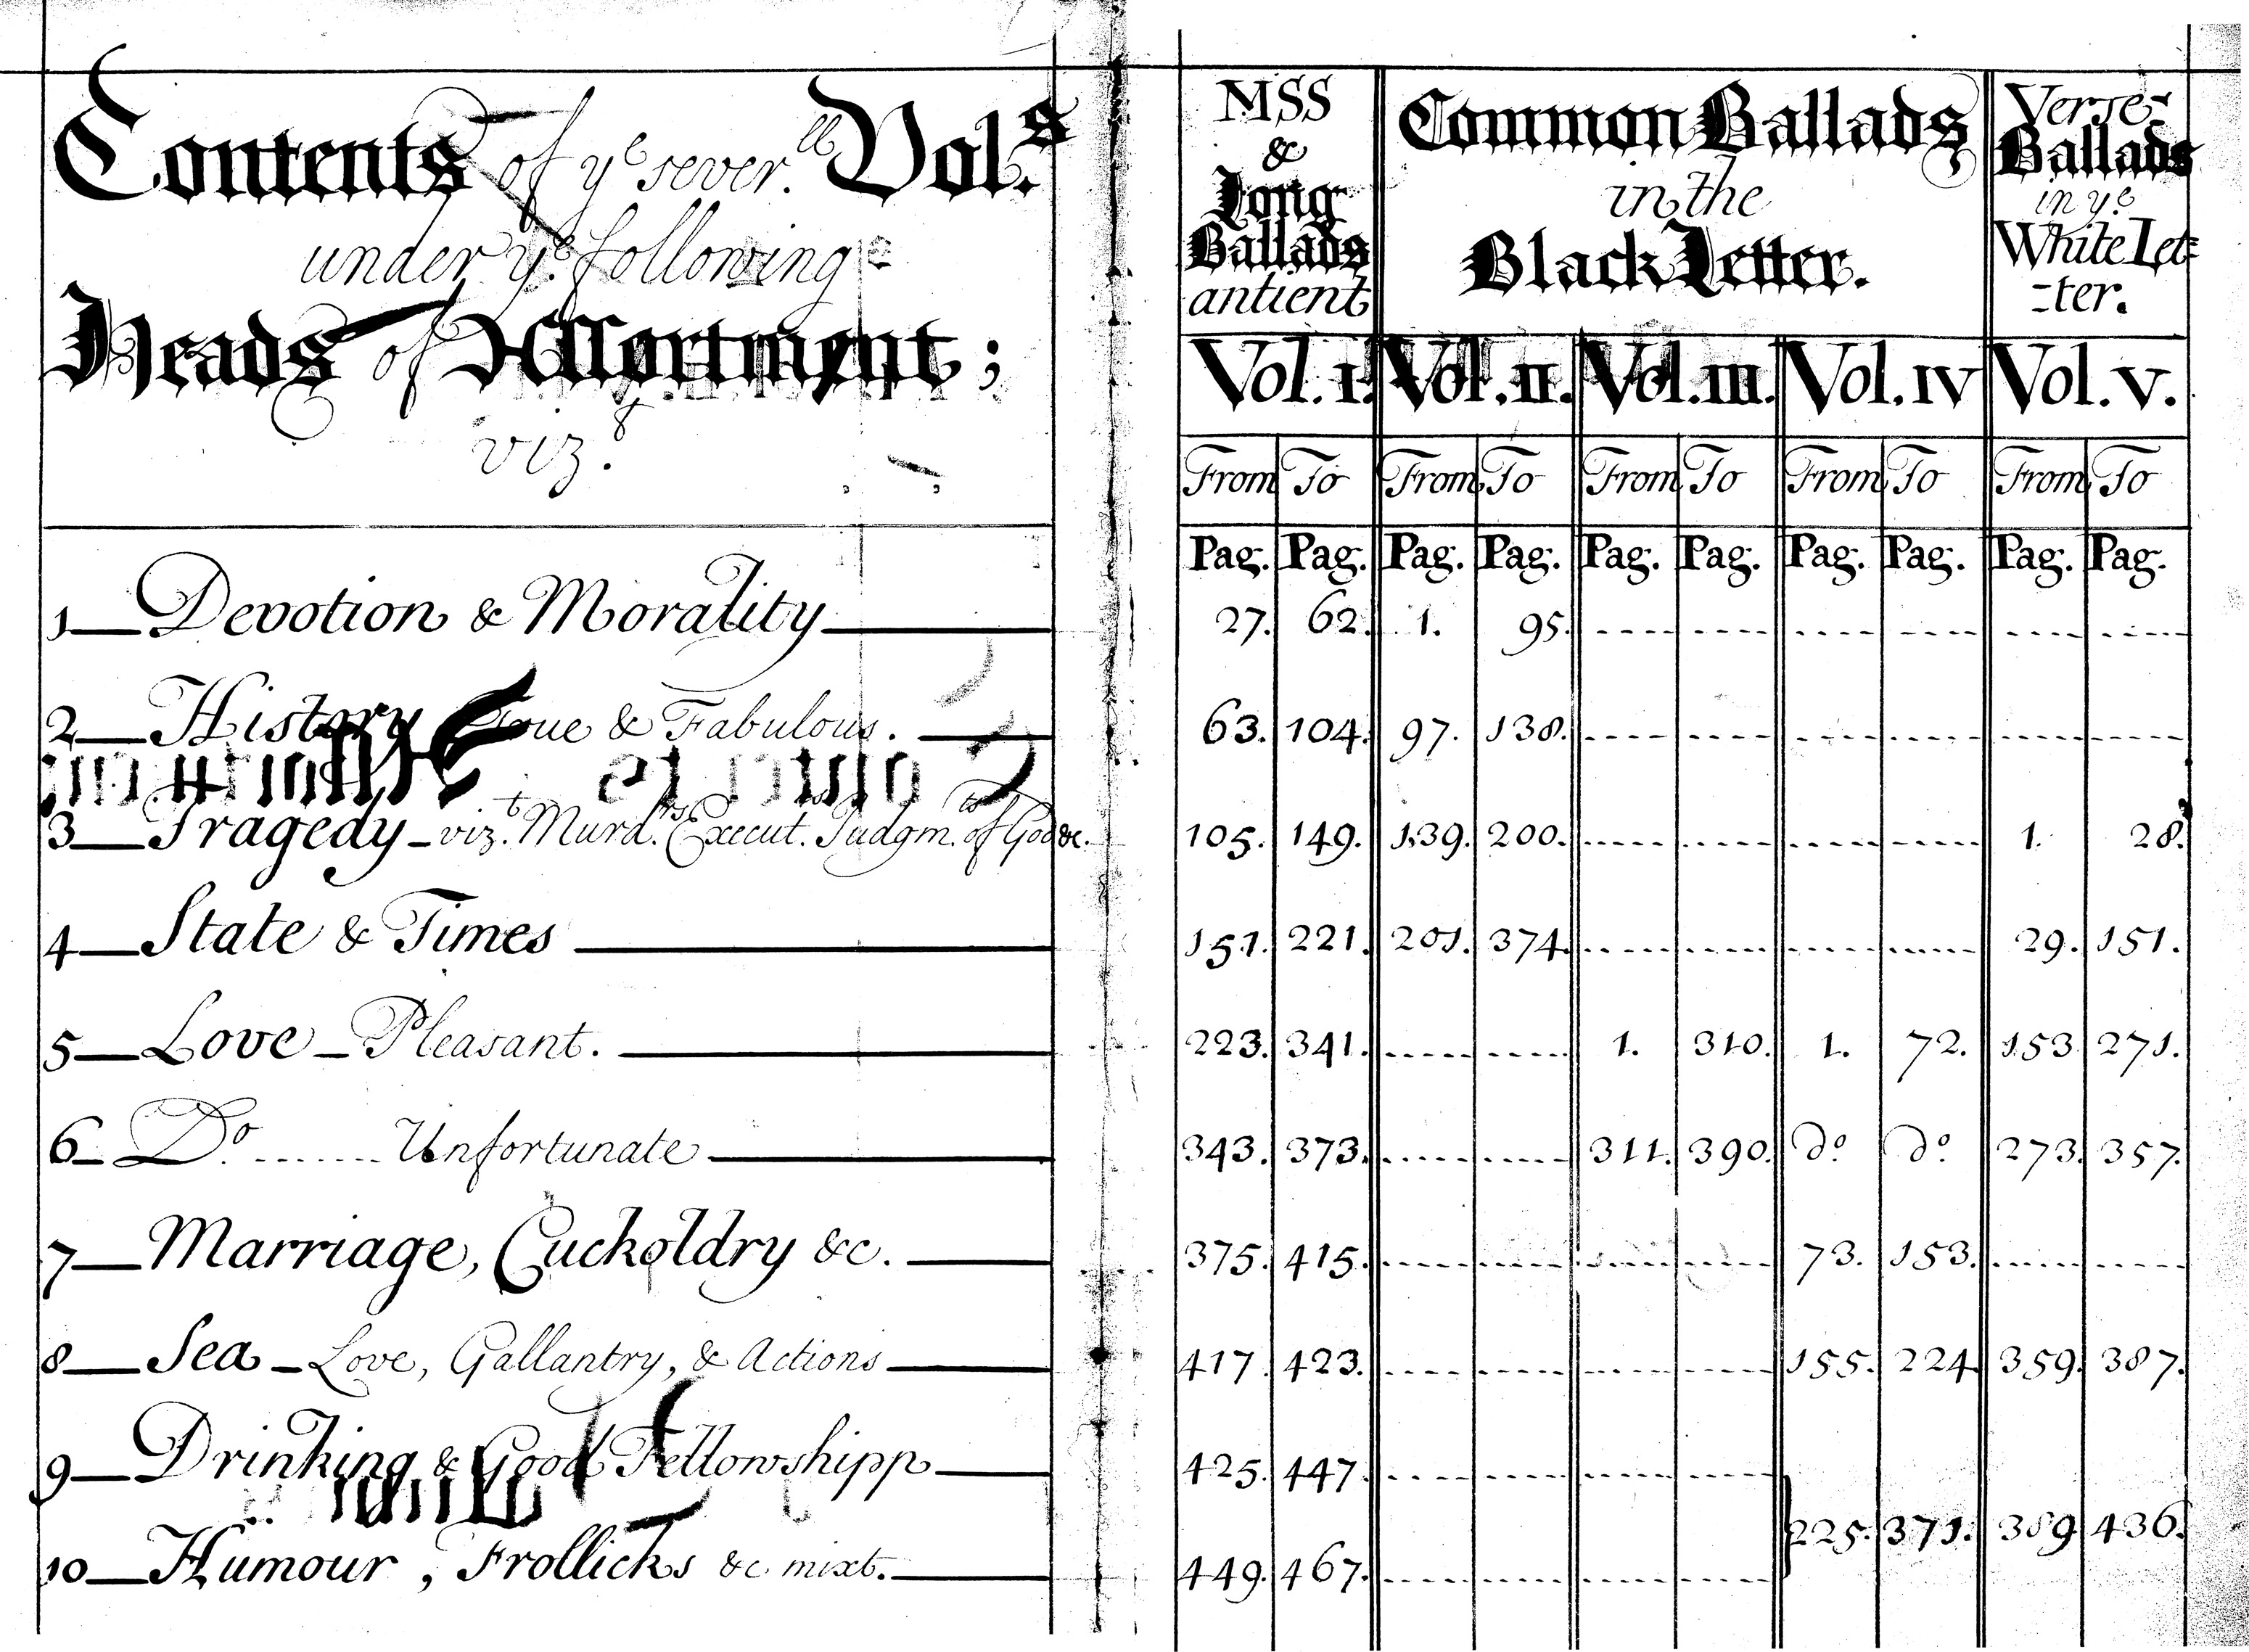 Contents of yᵉ sever.ˡˡ Vol.ˢ
under yᵉ following
Heads of Assortment;
viz.ᵗ
1 Devotion & Morality
2 History True & Fabulous.
3 Tragedy - viz.ᵗ Murd.ʳˢ Execut.ˢ Judgm.ᵗˢ of God &c.
4 State & Times
5 Love - Pleasant.
6 D.º Unfortunate
7 Marriage, Cuckoldry &c.
8 Sea - Love, Gallantry, & Actions
9 Drinking & Good Fellowshipp
10 Humour, Frollicks &c. mixt.
MSS
&
Long
Ballads
antient
Common Ballads
in the
Black Letter.
Verse
Ballads
in yᵉ
White Let=
-ter.
Vol. I. Vol. II. Vol. III. Vol. IV Vol. V.
From To From To From To From To From To
Pag. Pag. Pag. Pag. Pag. Pag. Pag. Pag. Pag. Pag.
27. 62. 1. 95.
63. 104. 97. 138.
105. 149. 139. 200. 1. 28.
151. 221. 201. 374. 29. 151.
223. 341. 1. 310. 1. 72. 153. 271.
343. 373. 311. 390. d.º d.º 273. 357.
375. 415. 73. 153.
417. 423. 155. 224. 359. 387.
425. 447.
225. 371. 389. 436.
449. 467.